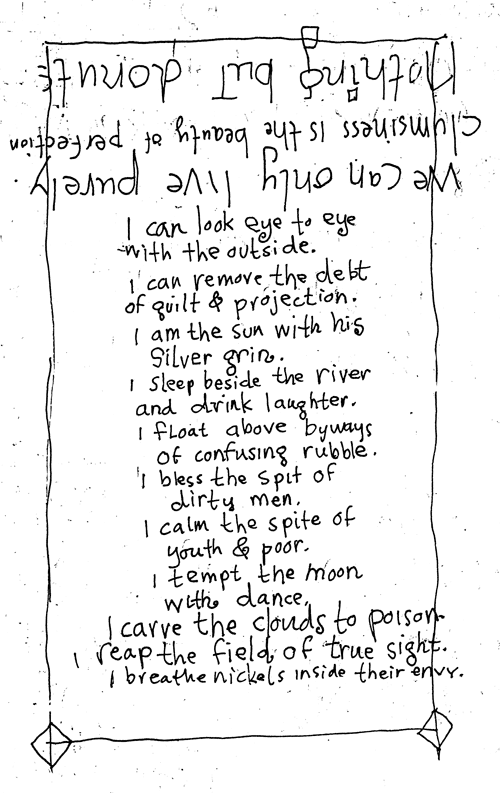 We can only live purely
clumsiness is the beauty of perfection
Nothing but donuts
I can look eye to eye
with the outside.
I can remove the debt
of guilt & projection.
I am the sun with his
silver grin.
I sleep beside the river
and drink laughter.
I float above byways
of confusing rubble.
I bless the spit of
dirty men.
I calm the spite of
youth & poor.
I tempt the moon
with dance.
I carve the clouds to poison.
I reap the field of true sight.
I breathe nickels inside their envy.